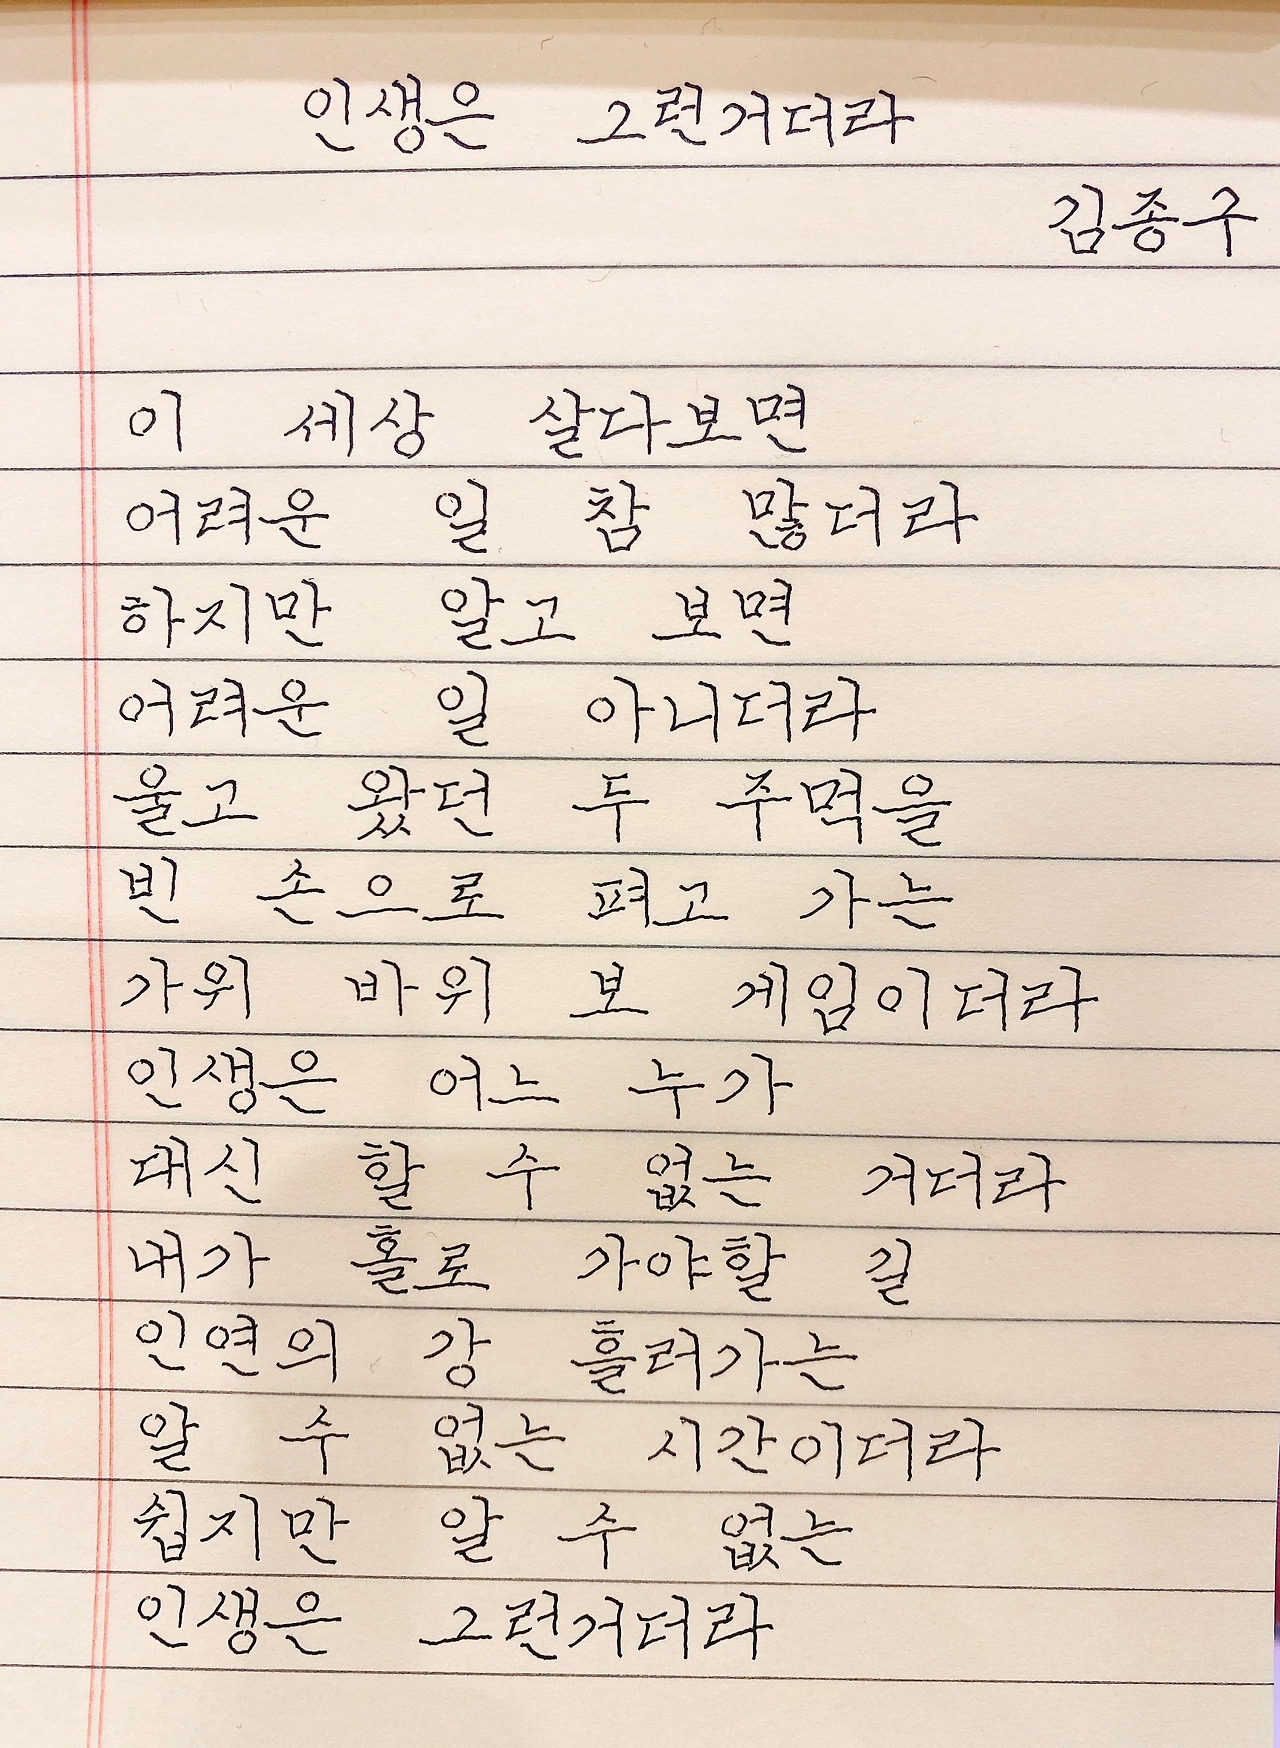 인생은 그런거더라
김종구
이 세상 살다보면
어려운 일 참 많더라
하지만 알고 보면
어려운 일 아니더라
울고 왔던 두 주먹을
빈 손으로 펴고 가는
가위 바위 보 게임이더라
인생은 어느 누가
대신 할 수 없는 거더라
내가 홀로 가야할 길
인연의 강 흘러가는
알 수 없는 시간이더라
쉽지만 알 수 없는
인생은 그런거더라